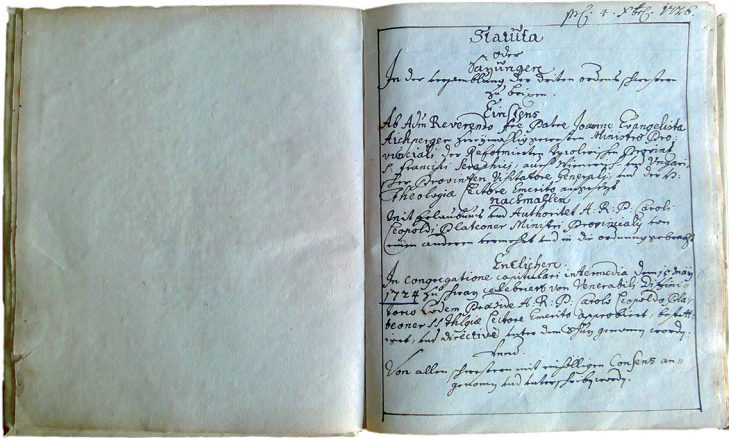 Statuta
oder
Sazungen
In der versamblung der driten ordens schwestern
zu brixen.
Einstens
Ab Adm Reverendo Patre Joanne Evangelista
Aichperger
Ministro Pro-
vinciali, der Reformierten Tyrolerischen Provinz
S. Francisci Seraphici, auch Wiener und Ungari-
scher Provinzen Visitatore Generali, und der H:
Theologiæ Lectore Emerito aufgesezt
nachmahlen
mit Erlaubnus und Authoritet A: R: P: Caroli
Leopoldi Plateoner Ministri Provinzialis von
einem anderen vermehrt und in die ordnung gebracht
Endlichen
In Congregatione capitulari intermedia dem 15 May
1724 zu celebriert von Venerabili Diffini-
torio Eodem Præside A: R: P: Carolo Leopoldo Pla-
teoner Lectore Emerito approbieret, bestett-
iget, und directive genomen worden.
Unnd
Von allen schwestern mit einhölligen Consens an-
genomen und unterschriben worden.